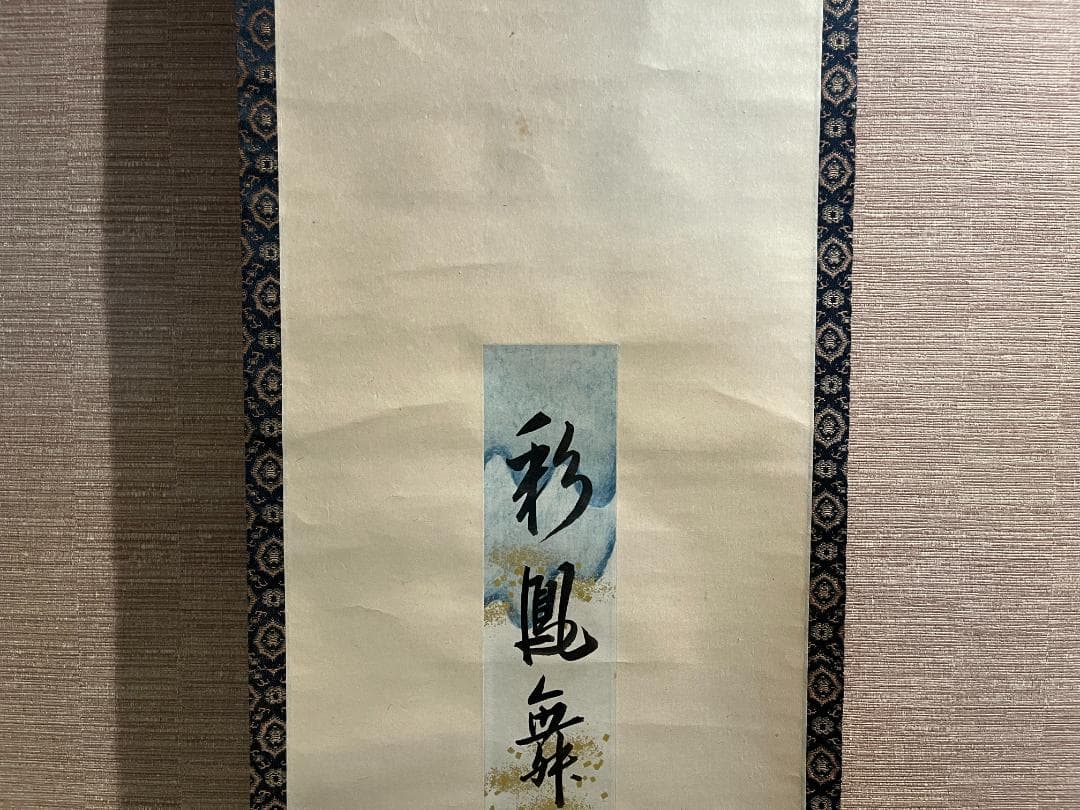 彩鳳舞